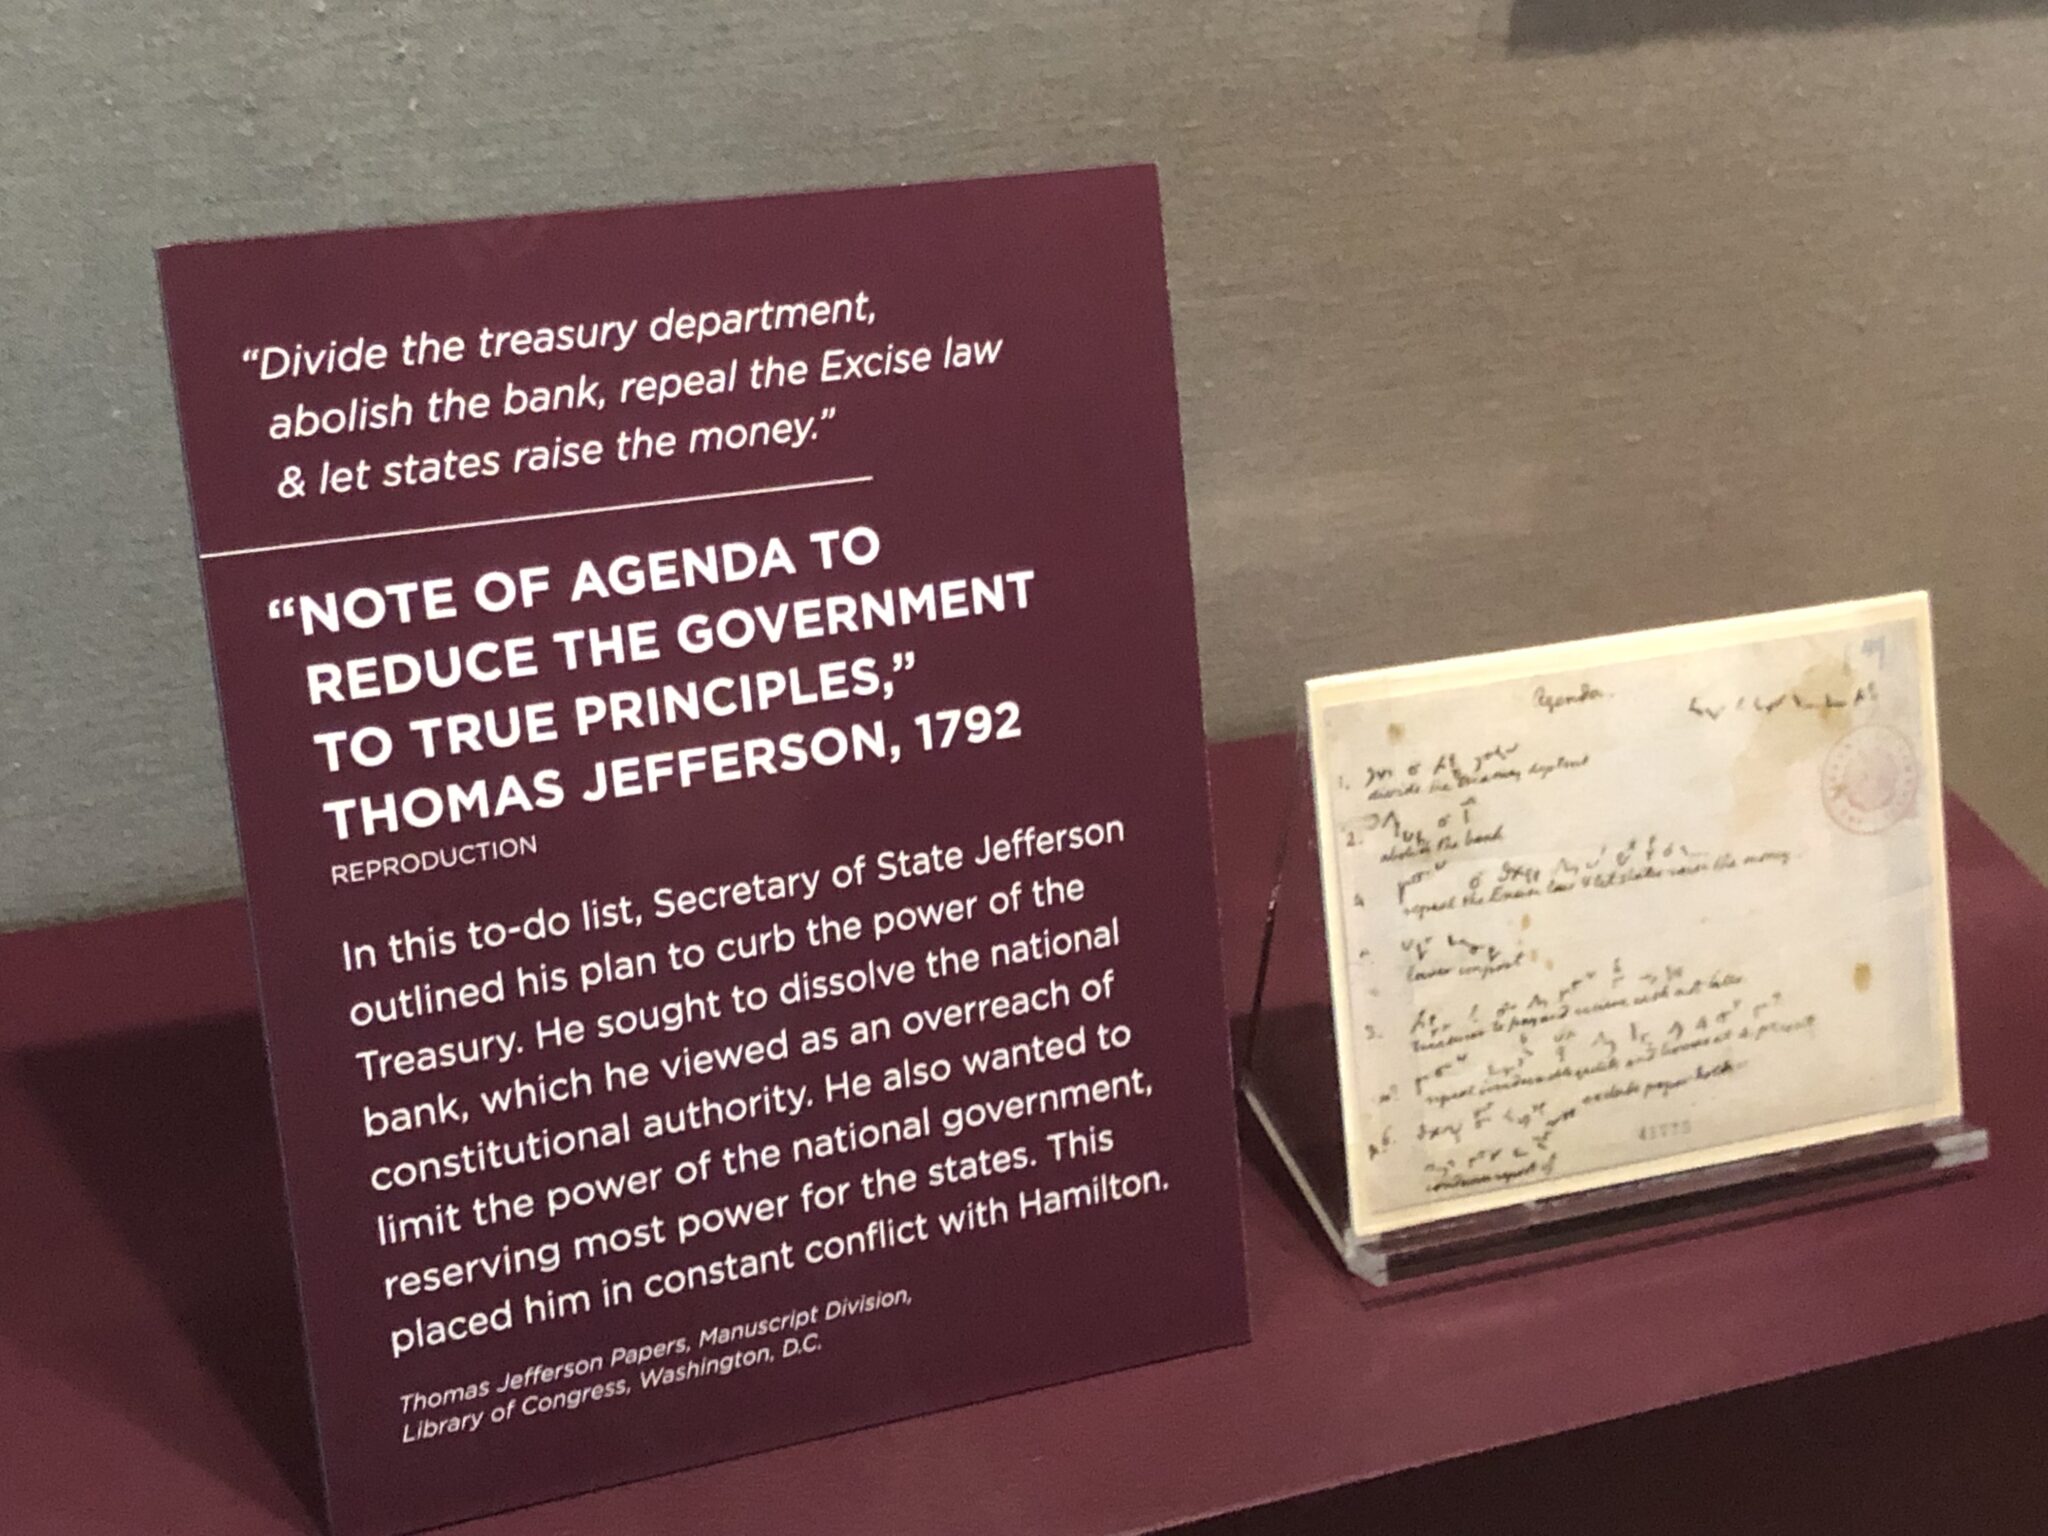 “Divide the treasury department,
abolish the bank, repeal the Excise law
& let states raise the money.”
“NOTE OF AGENDA TO
REDUCE THE GOVERNMENT
TO TRUE PRINCIPLES,”
THOMAS JEFFERSON, 1792
REPRODUCTION
In this to-do list, Secretary of State Jefferson
outlined his plan to curb the power of the
Treasury. He sought to dissolve the national
bank, which he viewed as an overreach of
constitutional authority. He also wanted to
limit the power of the national government,
reserving most power for the states. This
placed him in constant conflict with Hamilton.
Thomas Jefferson Papers, Manuscript Division,
Library of Congress, Washington, D.C.
Agenda.
1.
divide the Treasury
2.
abolish the bank
repeal the Excise law & let states raise the money
lower impost
3.